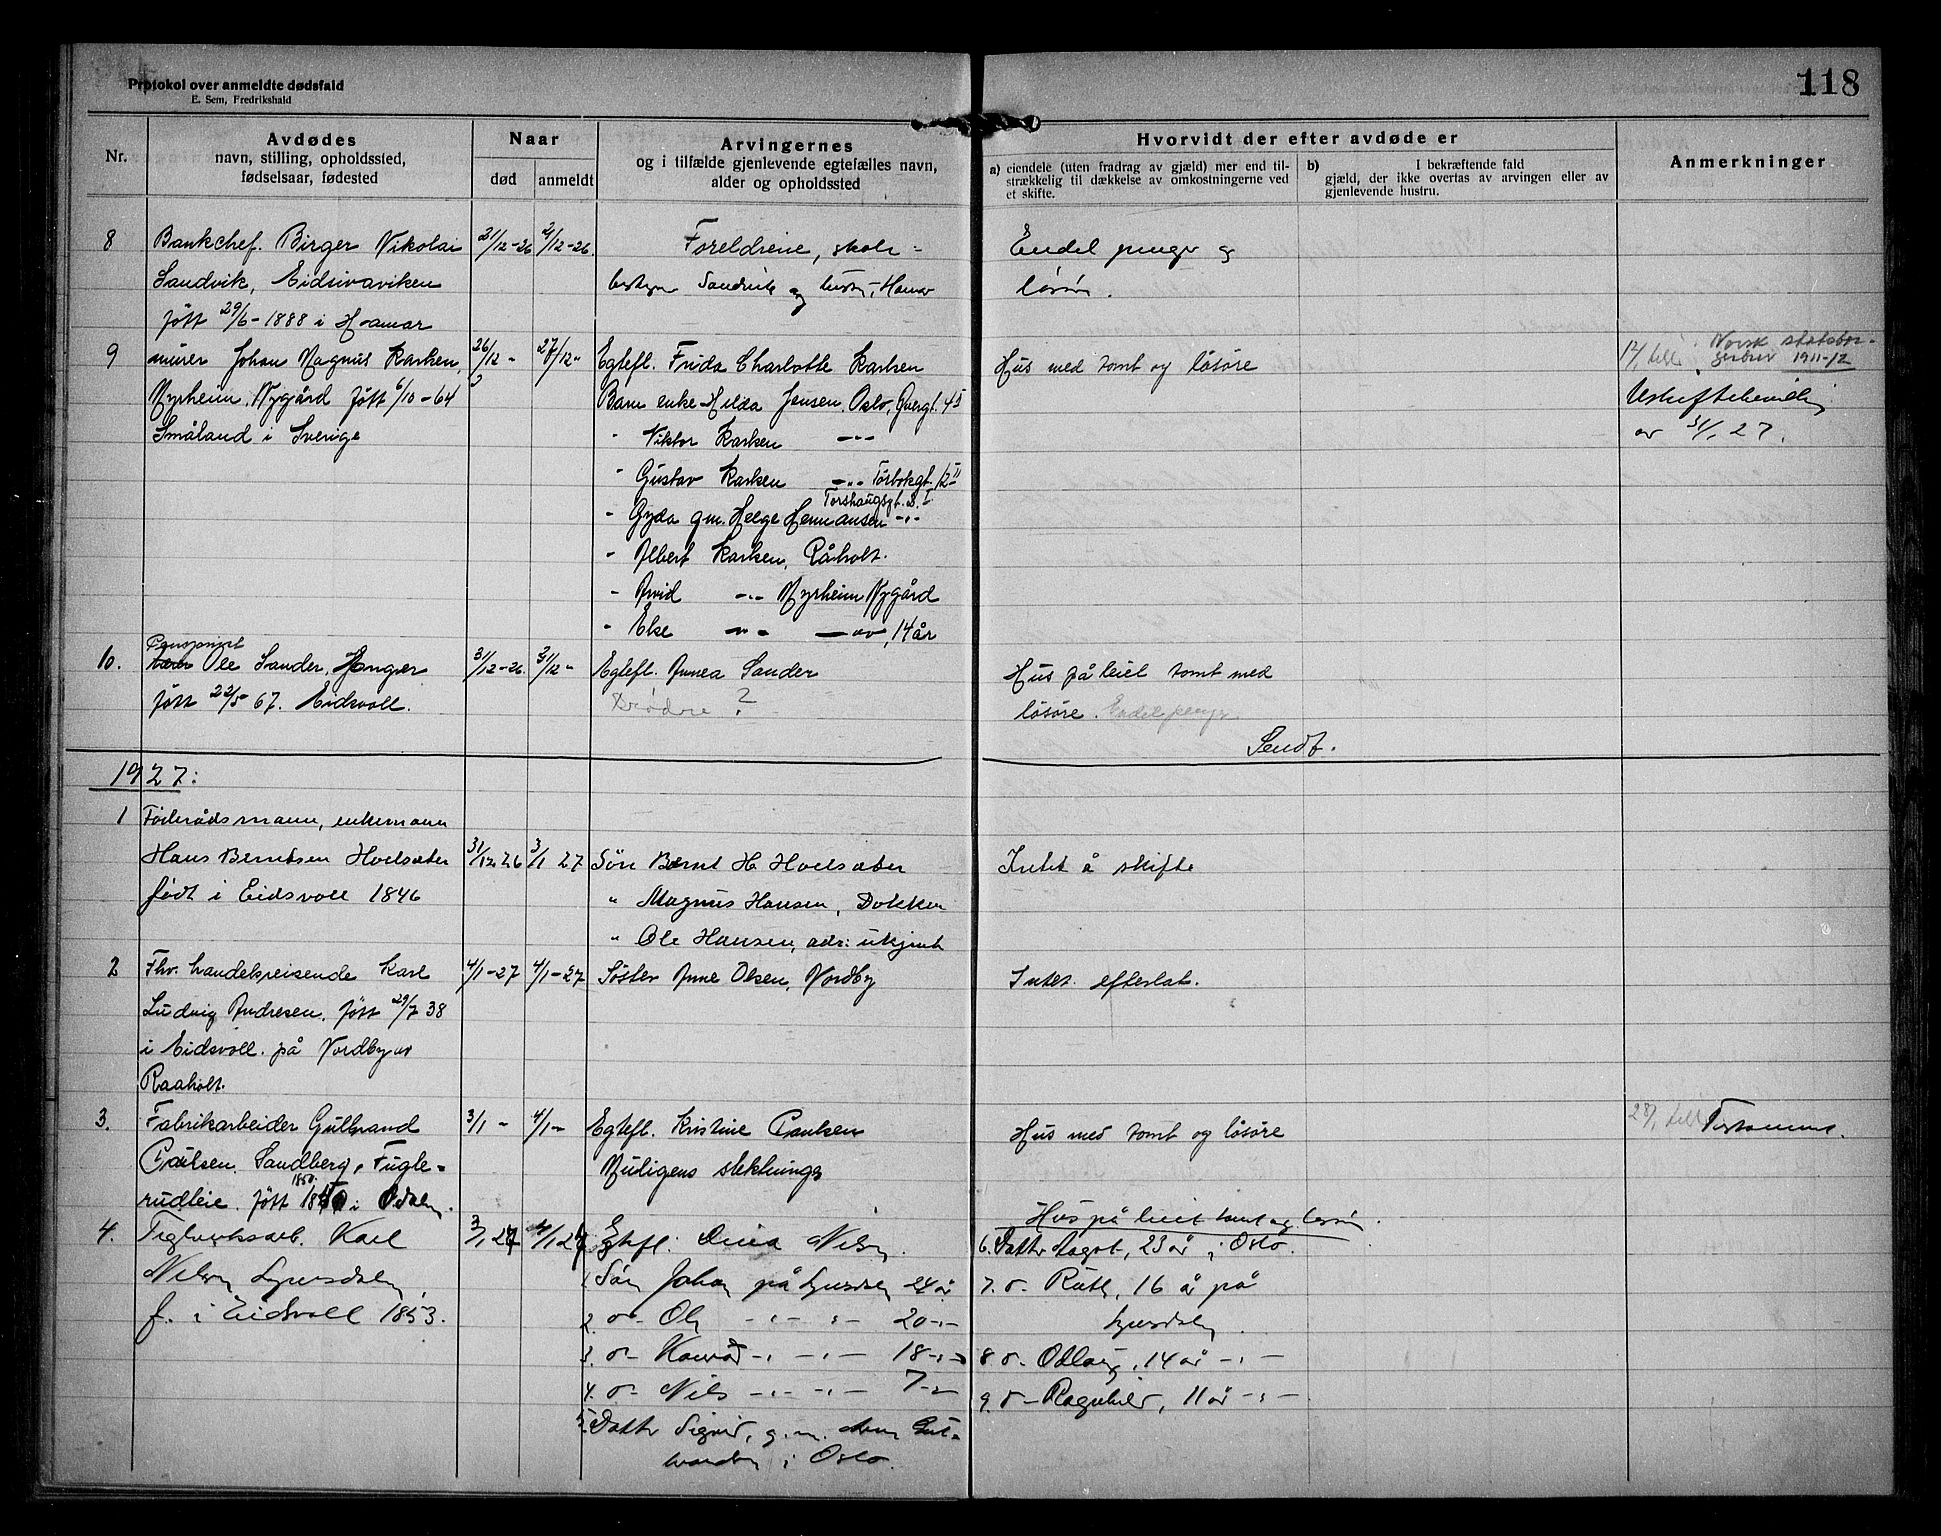 Protokol over anmeldte dødsfald
E. Sem, Fredrikshald
118
Nr.
Avdødes
navn, stilling, opholdssted,
fødselsaar, fødested
Naar
død
anmeldt
Arvingernes
og i tilfælde gjenlevende egtefælles navn,
alder og opholdssted
Hvorvidt der efter avdøde er
a) eiendele (uten fradrag av gjæld) mer end til-
strækkelig til dækkelse av omkostningerne ved
et skifte.
b) I bekræftende fald
gjæld, der ikke overtas av arvingen eller av
gjenlevende hustru.
Anmerkninger
8 Bankchef. Birger Nikolai 21/12-26 /12-26. Foreldrene, skole- Endel penger og
Sandvik, Eidsivaviken Sandvik og hustru, Hamar løsøre.
føtt 29/6-1888 i Hamar
9 murer Johan Magnus Karlsen, 26/12 " 27/12 " Egtefl. Frida Charlotte Karlsen Hus med tomt og løsøre 12/1 Norsk statsbor-
gerbrev 1911-12
Myrheim, Nygård føtt 6/10-64 Barn enke Hilda Jensen, Oslo, 4 II Uskiftebevilling
Småland i Sverige " Viktor Karlsen -"- av 31/1 27.
" Gustav Karlsen -"- 12 II
Torshaugsgt. 3. I
" Gyda gm. Helge Hermansen -"-
" Albert Karlsen, Råholt.
" Arvid -"- Myrheim Nygård
" Else -"- -"-, 14 år
Pensjonist
10. Ole Sander, Hanger 31/12-26. 31/12- Egtefl. Annea Sander Hus på leiet tomt med
føtt 22/5 67. Eidsvoll. Brødre ? løsøre. Endel penger
Sendt.
1927:
1 Føderådsmann, enkemann
Hans Berntsen Hoelsæter 31/12 26 3/1 27 Søn Bernt H. Hoelsæter Intet å skifte
født i Eidsvoll 1846 " Magnus Hansen, Dokken
" Ole Hansen, adr: ukjent
2 Fhv. handelsreisende Karl 4/1-27 4/1-27 Søster Anne Olsen, Nordby Intet efterlat.
Ludvig Andresen, føtt 29/7 38
i Eidsvoll. på Nordby av
Raaholt.
3. Fabrikarbeider Gulbrand 3/1 - 4/1 - Egtefl. Kristine Paulsen Hus med tomt og løsøre 28/1 Testamente.
Paulsen, Sandberg, Fugle- Muligens slektninger
1850.
rudleie. føtt i Odalen.
4. Teglverksarb. Karl 3/1 27 4/1 27 Egtefl. Dina Nilsen. Hus på leiet tomt og løsøre.
6. Datter Aagot, 23 år i Oslo.
Nilsen 1. Søn Johan på 24 år 7. d- Ruth, 16 år på
f. i Eidsvoll 1853. 2. d- Ole -"- -"- 20 -"-
3. d- Konrad -"- -"- 18 -"- 8 d- Odlaug, 14 år -"-
4. d- Nils -"- -"- 7 -"- 9. d- Ragnhild, 11 år -"-
5. Datter Sigrid, g. m.
i Oslo.